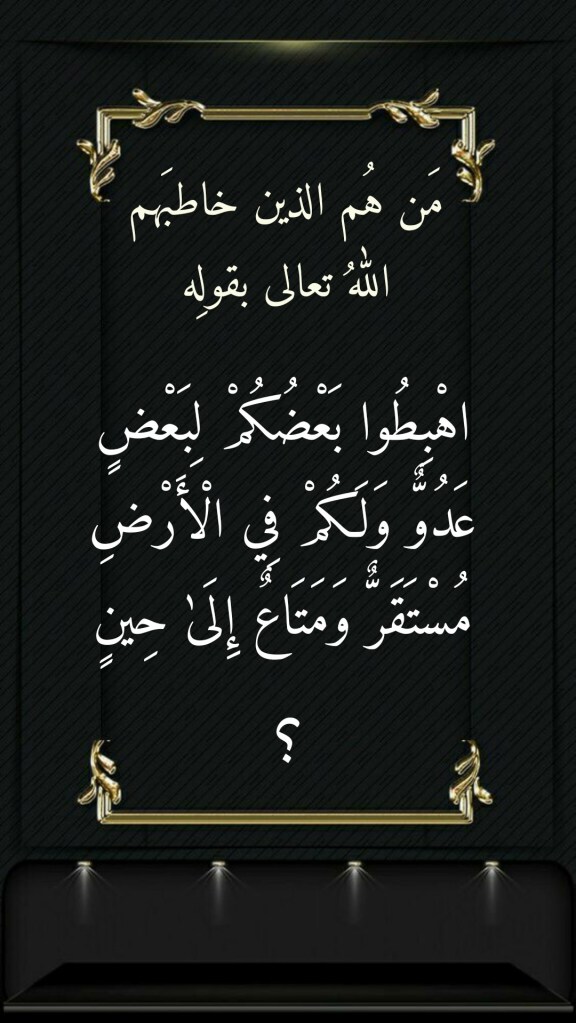 مَن هُم الذين خاطبَهم
اللهُ تعالى بقولِه
اهْبِطُوا بَعْضُكُمْ لِبَعْضٍ
عَدُوٌّ وَلَكُمْ فِي الْأَرْضِ
مُسْتَقَرٌّ وَمَتَاعٌ إِلَىٰ حِينٍ
؟